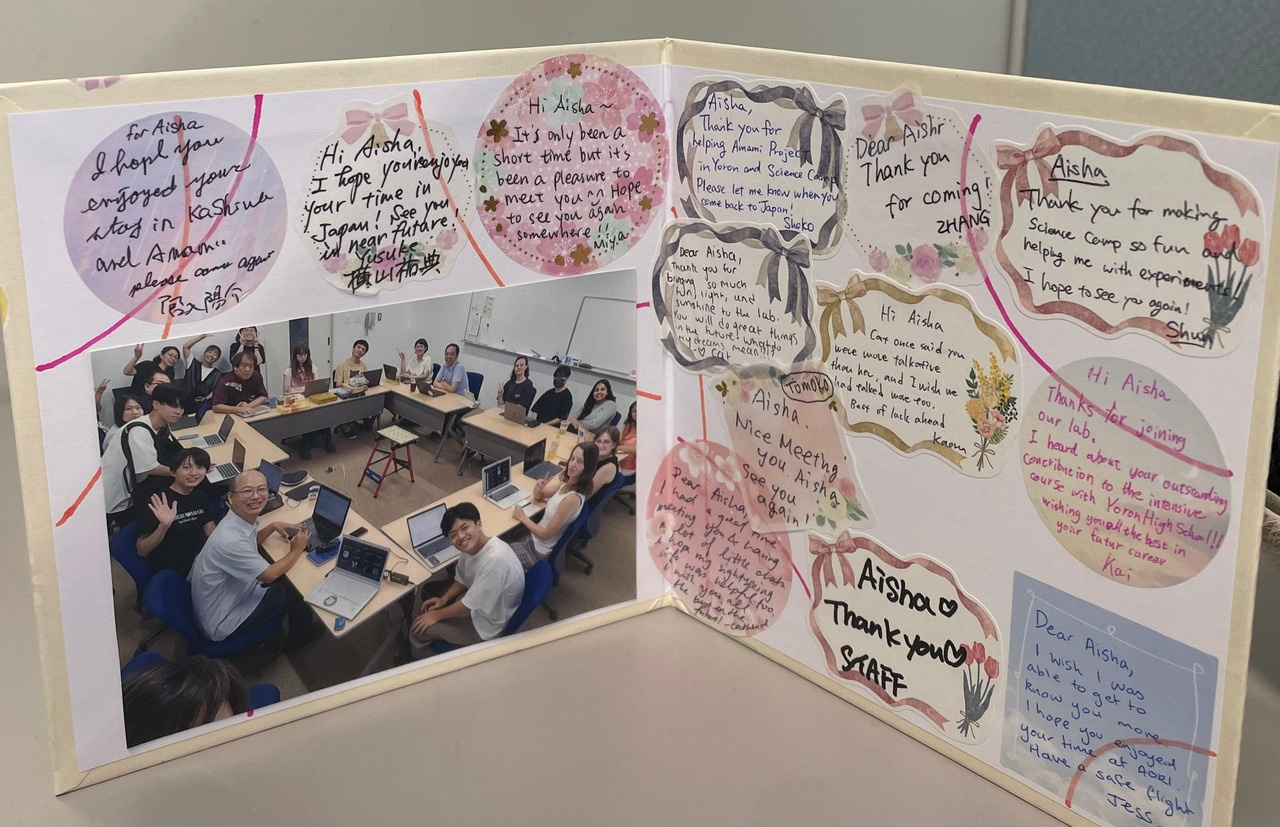 for Aisha
I hopl you
enjoyed your
stay in Kashiwa
and Amami.
please come again
Hi Aisha,
I hope you enjoyed
your time in
Japan! See you
in near future!
Yusuke
横山祐典
Hi Aisha ~
It's only been a
short time but it's
been a pleasure to
meet you ^^ Hope
to see you again
somewhere!!
Miyu
Aisha,
Thank you for
helping Amami Project
in Yoron and Science Camp
Please let me know when you
come back to Japan!
Shoko
Dear Aishr
Thank you
for coming!
ZHANG
Aisha
Thank you for making
Science Camp so fun and
helping me with experiments!
I hope to see you again!
Shun
Dear Aisha,
Thank you for
bringing so much
fun, light, and
sunshine to the lab.
You will do great things
in the future! What do
my dreams mean!?!?
♡ Cat
Hi Aisha
Cax once said you
were more talkative
than her, and I wish we
had talked more too.
Best of luck ahead
Kaoru
TOMOKO
Aisha.
Nice Meeting
you Aisha
See you
again!
Hi Aisha
Thanks for joining
our lab.
I heard about your outstanding
Contribution to the intensive
course with Yoron High School!!
wishing you all the best in
your futur career
Kai
Dear Aisha,
I had a great time
meeting you & having
a lot of little chats
I hope my sightseeing
was helpful too.
wish you all
the best in the
future!
Aisha♡
Thank you♡
STAFF
Dear Aisha,
I wish I was
able to get to
know you more.
I hope you enjoyed
your time at AORI.
Have a safe flight
Jess